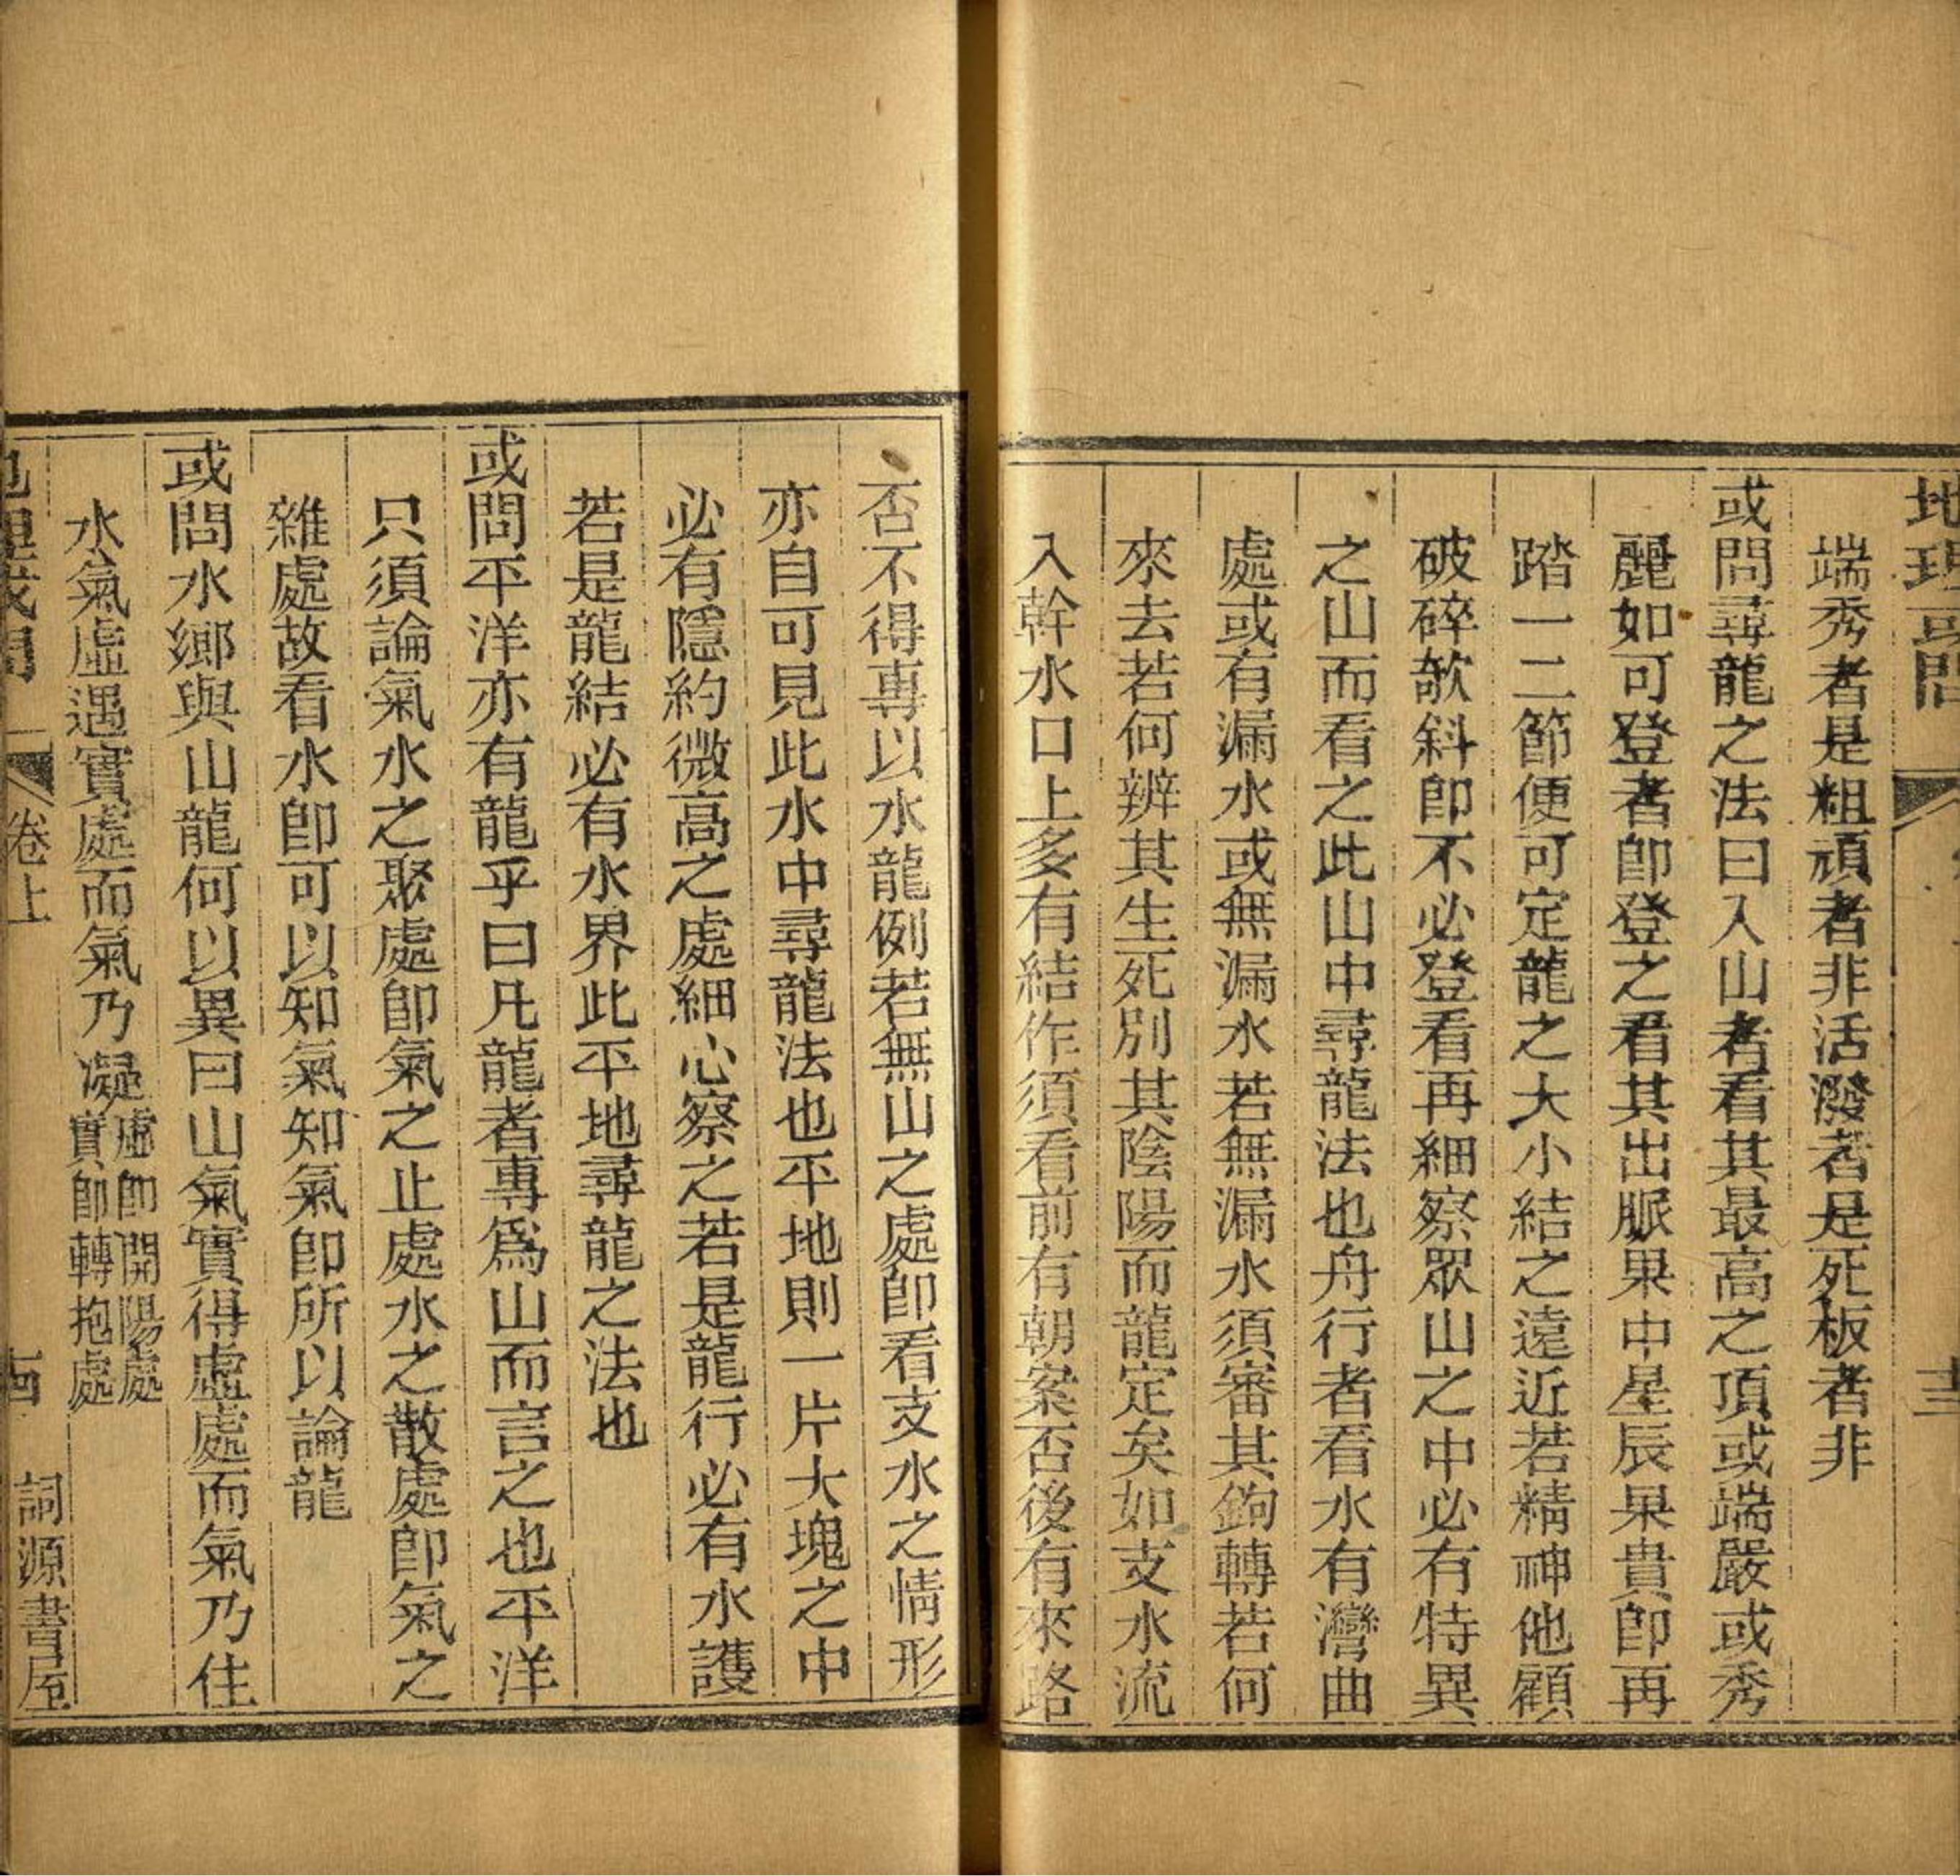 地理或問
十三
端秀者是粗頑者非活潑者是死板者非
或問尋龍之法曰入山者看其最高之頂或端嚴或秀
麗如可登者卽登之看其出脈果中星辰果貴卽再
踏一二節便可定龍之大小結之遠近若精神他顧
破碎欹斜卽不必登看再細察眾山之中必有特異
之山而看之此山中尋龍法也舟行者看水有灣曲
處或有漏水或無漏水若無漏水須審其鉤轉若何
來去若何辨其生死別其陰陽而龍定矣如支水流
入幹水口上多有結作須看前有朝案否後有來路
否不得專以水龍例若無山之處卽看支水之情形
亦自可見此水中尋龍法也平地則一片大塊之中
必有隱約微高之處細心察之若是龍行必有水護
若是龍結必有水界此平地尋龍之法也
或問平洋亦有龍乎曰凡龍者專爲山而言之也平洋
只須論氣水之聚處卽氣之止處水之散處卽氣之
雜處故看水卽可以知氣知氣卽所以論龍
或問水鄉與山龍何以異曰山氣實得虛處而氣乃住
水氣虛遇實處而氣乃凝虛卽開陽處實卽轉抱處
地理或問
卷上
古
詞源書屋